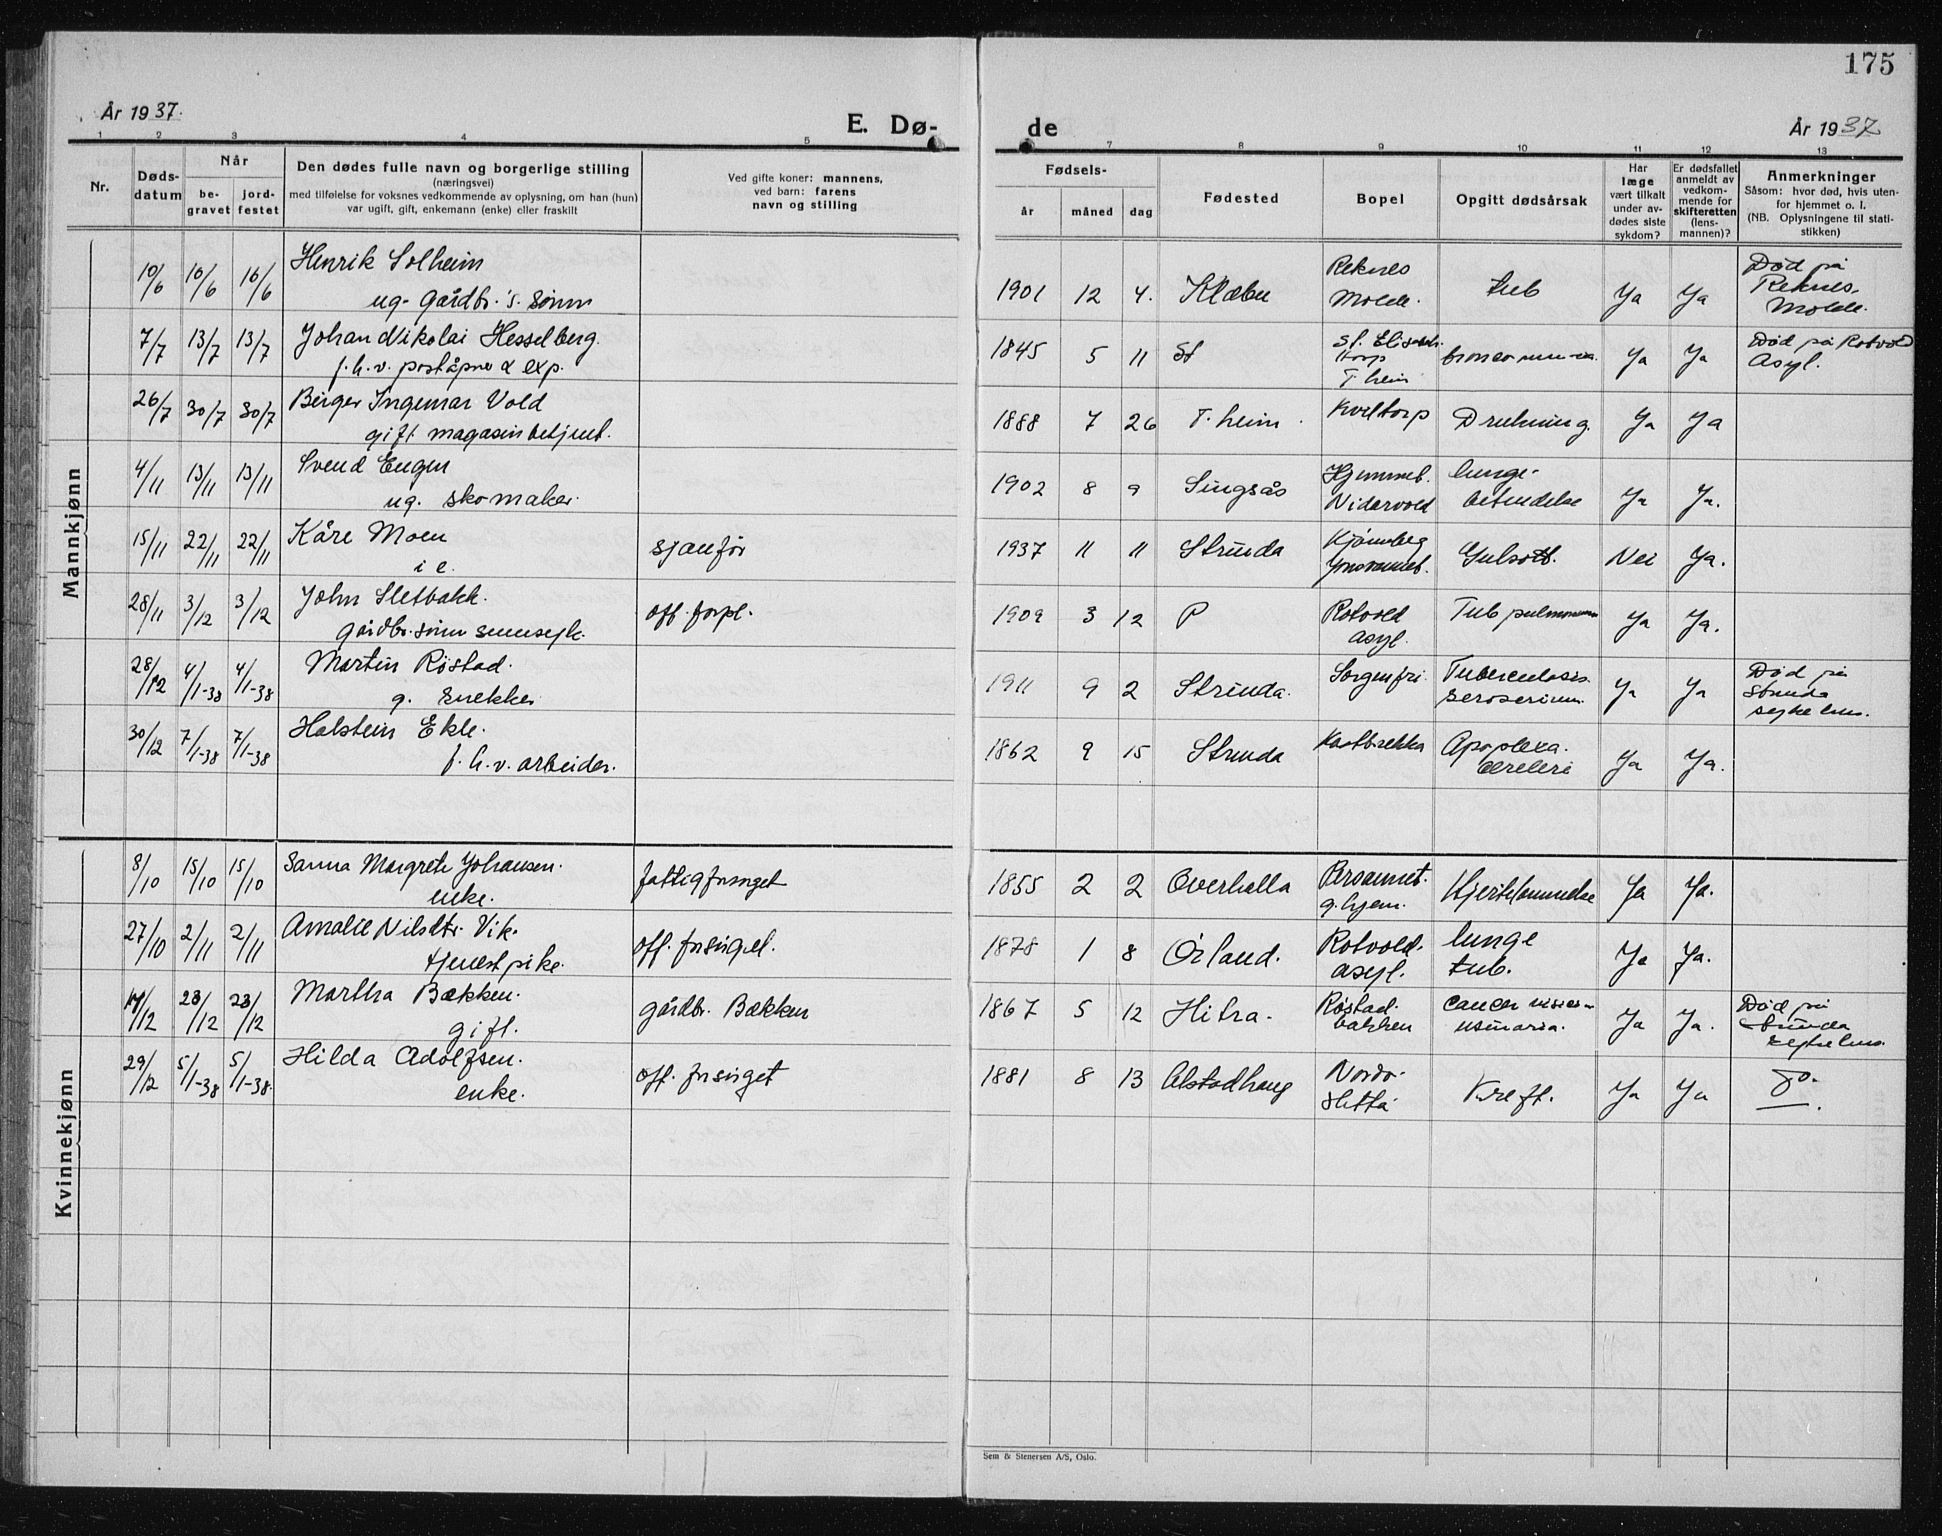 175
År 1937.
E. Dø-
de
År 1937
1 2 3 4 5
7 8 9 10 11 12 13
Nr.
Døds-
datum
Når
be-
gravet
jord-
festet
Den dødes fulle navn og borgerlige stilling
(næringsvei)
med tilføielse for voksnes vedkommende av oplysning, om han (hun)
var ugift, gift, enkemann (enke) eller fraskilt
Ved gifte koner: mannens,
ved barn: farens
navn og stilling
Fødsels-
år måned dag
Fødested
Bopel
Opgitt dødsårsak
Har
læge
vært tilkalt
under av-
dødes siste
sykdom?
Er dødsfallet
anmeldt av
vedkom-
mende for
skifteretten
(lens-
mannen)?
Anmerkninger
Såsom: hvor død, hvis uten-
for hjemmet o. l.
(NB. Oplysningene til stati-
stikken)
Mannkjønn
10/6 16/6 16/6 Henrik Solheim
ug. gårdbr.'s. sønn
1901 12 4. Klæbu Reknes
Molde. tub Ja Ja Død på
Reknes.
Molde.
7/7 13/7 13/7 Johan Nikolai Hesselberg.
f.h.v. poståpner & exp.
1845 5 11 St St. Elisabeth.
T.heim Ja Ja Død på Rotvold
Asyl.
26/7 30/7 30/7 Birger Ingemar Vold
gift magasinbetjent.
1888 7 26 T.heim. Kveltorp Drukning. Ja Ja
4/11 13/11 13/11 Svend Eugen
ug. skomaker.
1902 8 9 Singsås Hjemmet.
Nidarvold lunge-
betendelse Ja Ja.
15/11 22/11 22/11 Kåre Moen
i e.
sjanfør
1937 11 11 Strinda Gulsott. Nei Ja.
28/11 3/12 3/12 John Sletbakk.
gårdbr. sønn sinnsyk.
off. forpl.
1909 3 12 P Rotvold
asyl. Tub pulmonum Ja Ja.
28/12 4/1-38 4/1-38 Martin Røstad.
g. snekker
1911 9 2 Strinda. Sorgenfri Tuberculosis
serosarium. Ja Ja Død på
Strinda
sykehus.
30/12 7/1-38 7/1-38 Halstein Ekle.
f.h.v. arbeider.
1862 9 15 Strinda Kastbrekka Apoplexa.
cerebri Ja Ja.
Kvinnekjønn
8/10 15/10 15/10 Sanna Margrete Johansen.
enke.
fattigforsørget
1855 2 2 Overhalla Persaunet.
g.hjem. Hjertelammelse Ja Ja.
27/10 2/11 2/11 Amalie Nilsdtr. Vik.
tjenestpike.
off. forsørget.
1878 1 8 Ørland. Rotvold.
asyl. lunge
tub. Ja Ja.
17/12 23/12 23/12 Martha Bækken.
gift.
gårdbr. Bækken
1867 5 12 Hitra. Røstad.
bakken cancer vesica
urinaria. Ja Ja. Død på
Strinda
sykehus.
29/12 5/1-38 5/1-38. Hilda Adolfsen.
enke.
off. forsørget
1881 8 13 Alstadhaug Nardo-
sletta Kreft. Ja Ja Do.
Sem & Stenersen A/S, Oslo.